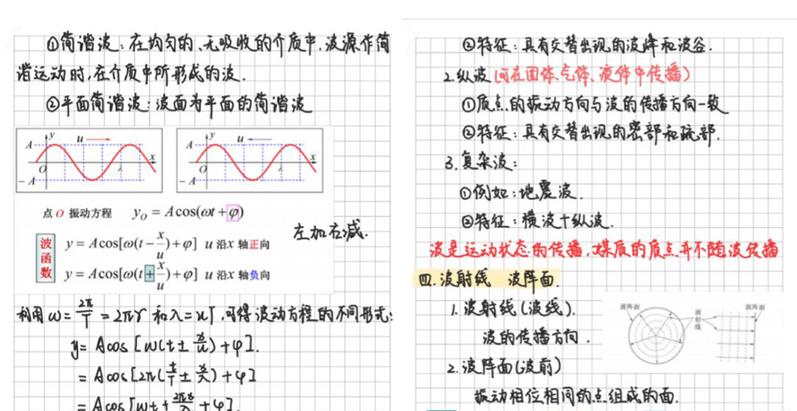 ①简谐波：在均匀的、无吸收的介质中，波源作简
谐运动时，在介质中所形成的波.
②平面简谐波：波面为平面的简谐波
y u
A
O λ x
-A
y u
A
O λ x
-A
点 O 振动方程 y_O = A cos(ωt + φ)
左加右减.
波函数
y = A cos[ω(t - x/u) + φ] u 沿 x 轴正向
y = A cos[ω(t + x/u) + φ] u 沿 x 轴负向
利用 ω = 2π/T = 2πν 和 λ = uT，可得波动方程的不同形式:
y = A cos [ω(t ± x/u) + φ].
= A cos [2π(t/T ± x/λ) + φ]
= A cos [ωt + 2πx/λ + φ].
②特征：具有交替出现的波峰和波谷.
2.纵波（可在固体、气体、液体中传播）
①质点的振动方向与波的传播方向一致
②特征：具有交替出现的密部和疏部.
3.复杂波：
①例如：地震波.
②特征：横波+纵波.
波是运动状态的传播，媒质的质点并不随波传播
四.波射线 波阵面.
1.波射线（波线）.
波的传播方向.
2.波阵面（波前）
振动相位相同的点组成的面.
波阵面
波射线
波阵面